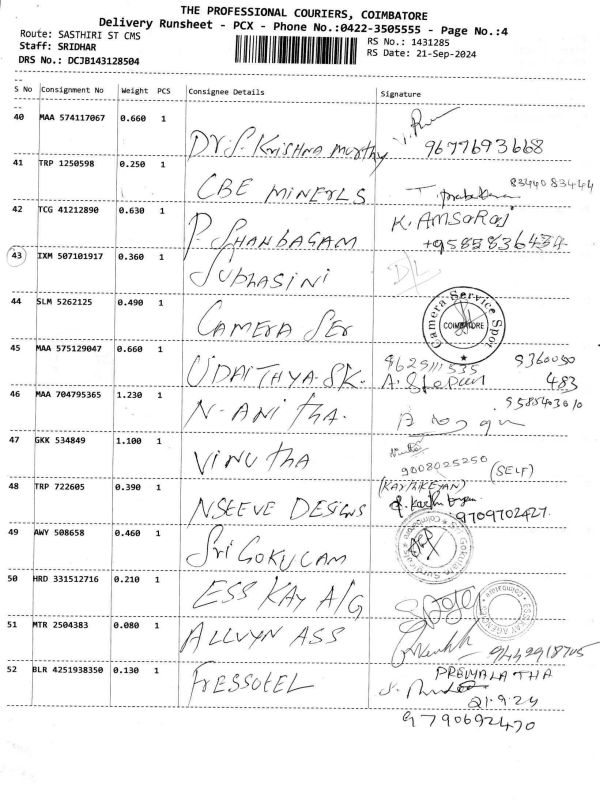 THE PROFESSIONAL COURIERS, COIMBATORE
Delivery Runsheet - PCX - Phone No.:0422-3505555 - Page No.:4
Route: SASTHIRI ST CMS
RS No.: 1431285
Staff: SRIDHAR
RS Date: 21-Sep-2024
DRS No.: DCJB143128504
S No Consignment No Weight PCS Consignee Details Signature
40 MAA 574117067 0.660 1
Dr.S. Krishna murthy 9677693668
41 TRP 1250598 0.250 1
CBE MINERLS 8344083444
42 TCG 41212890 0.630 1 K. AMSARAJ
P. SHANBAGAM
43 IXM 507101917 0.360 1
Subhasini D/L
44 SLM 5262125 0.490 1
CAMERA SER
Camera Service Spot
COIMBATORE
45 MAA 575129047 0.660 1
UDAITHYA.SK. 483
46 MAA 704795365 1.230 1
N-ANITHA.
47 GKK 534849 1.100 1
VINUTHA 9008025250 (SELF)
48 TRP 722605 0.390 1 (KARTHIKEYAN)
NSEEVE DESIGNS 9709702427.
49 AWY 508658 0.460 1
Sri GOKULAM
50 HRD 331512716 0.210 1
ESS KAY A/G
51 MTR 2504383 0.080 1
ALLVYN ASS 9442918705
52 BLR 4251938350 0.130 1
FRESSOTEL
21.9.24
9790692470